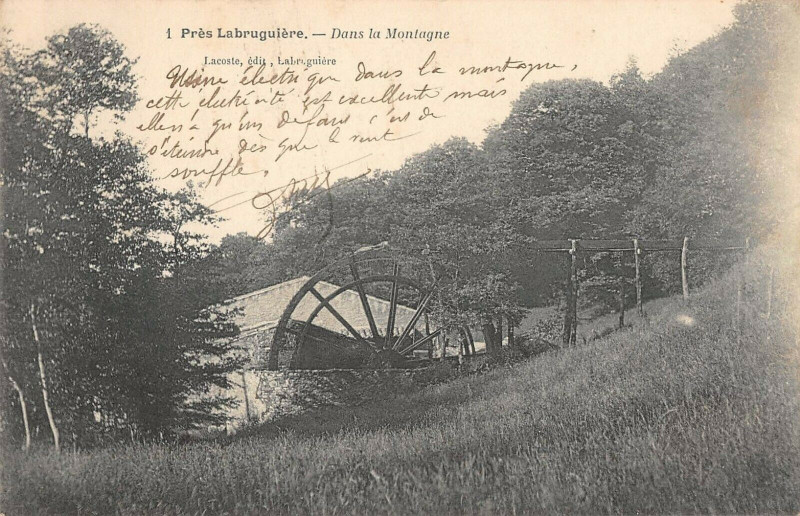 1 Près Labruguière. — Dans la Montagne
Lacoste, édit, Labruguière
Usine électrique dans la montagne,
cette électricité est excellente mais
elle n'a qu'un défaut c'est de
s'éteindre dès que le vent
souffle.